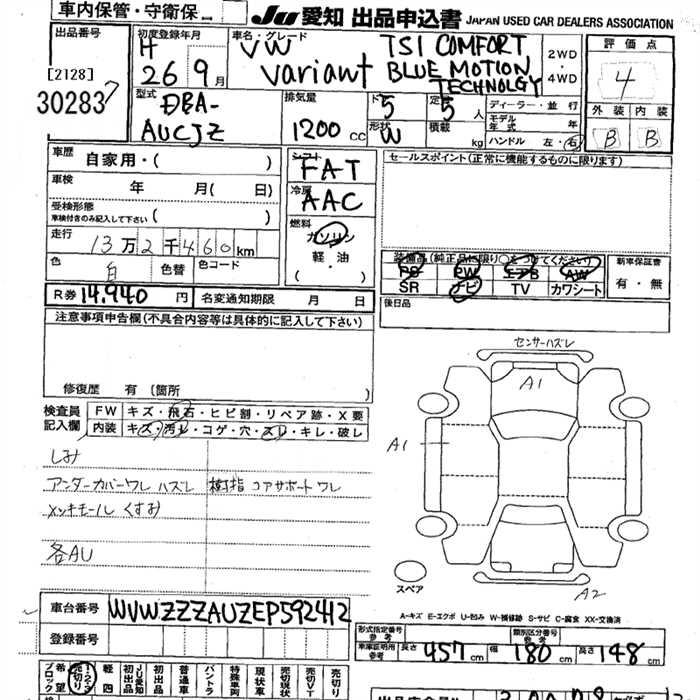 車内保管・守衛保
JU 愛知 出品申込書 JAPAN USED CAR DEALERS ASSOCIATION
出品番号
[2128]
30283 7
初度登録年月
H
26年 9月
車名・グレード
VW
Variant
TSI COMFORT
BLUE MOTION
TECHNOLGY
2WD
・
4WD
評価点
4
外装 内装
B B
型式
DBA-
AUCJZ
排気量
1200 cc
ドア 5
形状 W
定員 5人
積載 kg
ディーラー・並行
モデル年式 年
ハンドル 左・右
車歴 自家用・( )
車検 年 月( 日)
受検形態
車検付きのみ記入して下さい ( )
走行 13万2千460km
色 白 色替 色コード
R券 14.940 円 名変通知期限 月 日
シフト
FAT
冷房
AAC
燃料
ガソリン
軽・油
( )
セールスポイント(正常に機能するものに限ります)
装備品(純正品に限り○をつけてください)
PS PW エアB AW
SR ナビ TV カワシート
新車保証書
有・無
後日品
注意事項申告欄(不具合内容等は具体的に記入して下さい)
修復歴 有 〔箇所 〕
検査員
記入欄
FW キズ・飛石・ヒビ割・リペア跡・X要
内装 キズ・汚レ・コゲ・穴・スレ・キレ・破レ
しみ
アンダーカバーワレ ハズレ 樹脂コアサポートワレ
メッキモール くすみ
各AU
センサーハズレ
A1
A1
スペア
A2
A-キズ E-エクボ U-凹み W-補修跡 S-サビ C-腐食 XX-交換済
車台番号 WVWZZZAUZEP592412
登録番号
形式指定番号
参考
類別区分番号
参考
車庫証明用
参考
長さ 457 幅 180 高さ 148 cm
希望ブロック
売切り
軽四
初出品
JU初出品
普通車
バントラ
特殊車両
現状車
売切現状
売切VT
売切り